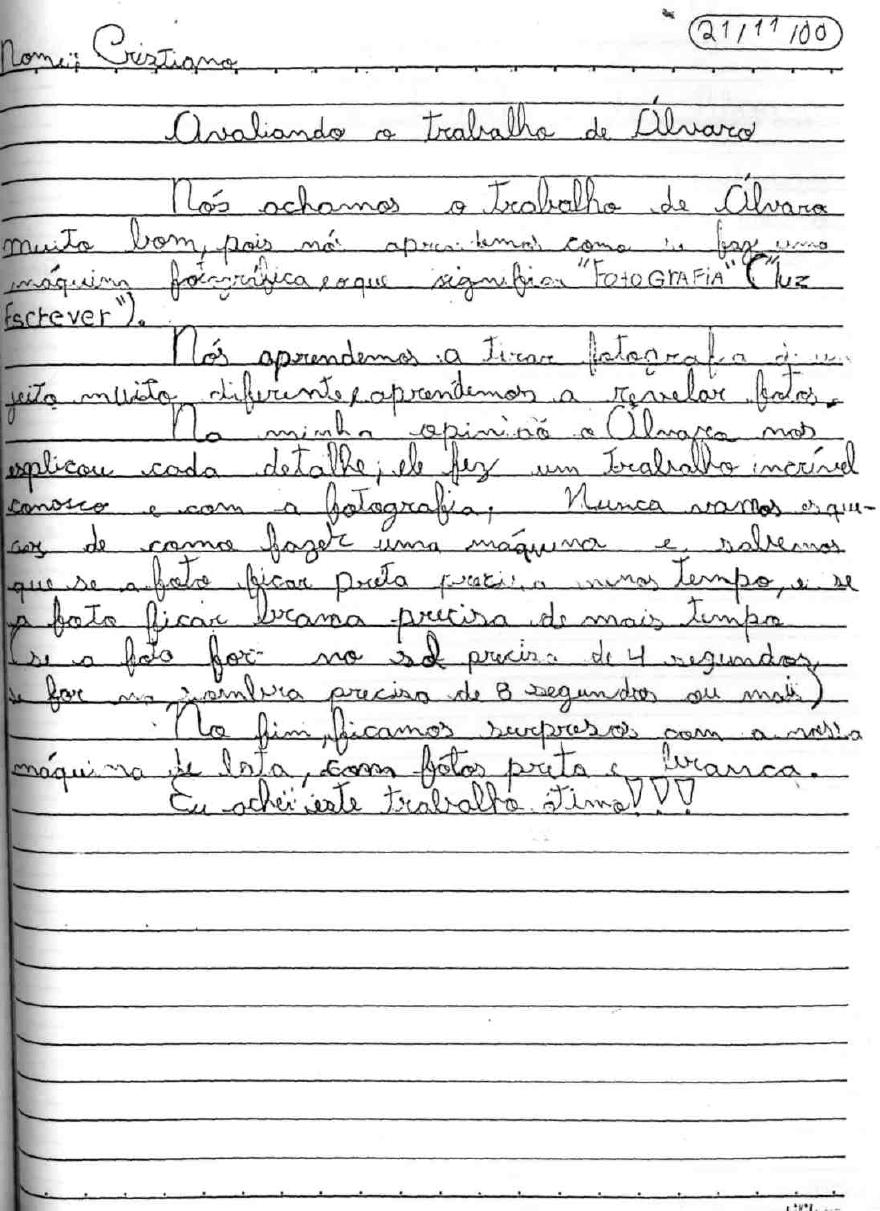 21/11/00
Nome: Cristiano
Avaliando o trabalho de Álvaro
Nós achamos o trabalho de Álvaro
muito bom, pois nós aprendemos como se faz uma
máquina fotográfica, e o que significa "FOTOGRAFIA" ("luz
Escrever").
Nós aprendemos a tirar fotografia de um
jeito muito diferente, e aprendemos a revelar fotos.
Na minha opinião o Álvaro nos
explicou cada detalhe; ele fez um trabalho incrível
conosco e com a fotografia; Nunca vamos esque-
cer de como fazer uma máquina e sabemos
que se a foto ficar preta precisa menos tempo, e se
a foto ficar branca precisa de mais tempo
(se a foto for no sol precisa de 4 segundos,
se for na sombra precisa de 8 segundos ou mais)
No fim, ficamos surpresos com a nossa
máquina de lata, com fotos preta e branca.
Eu achei este trabalho ótimo!!!